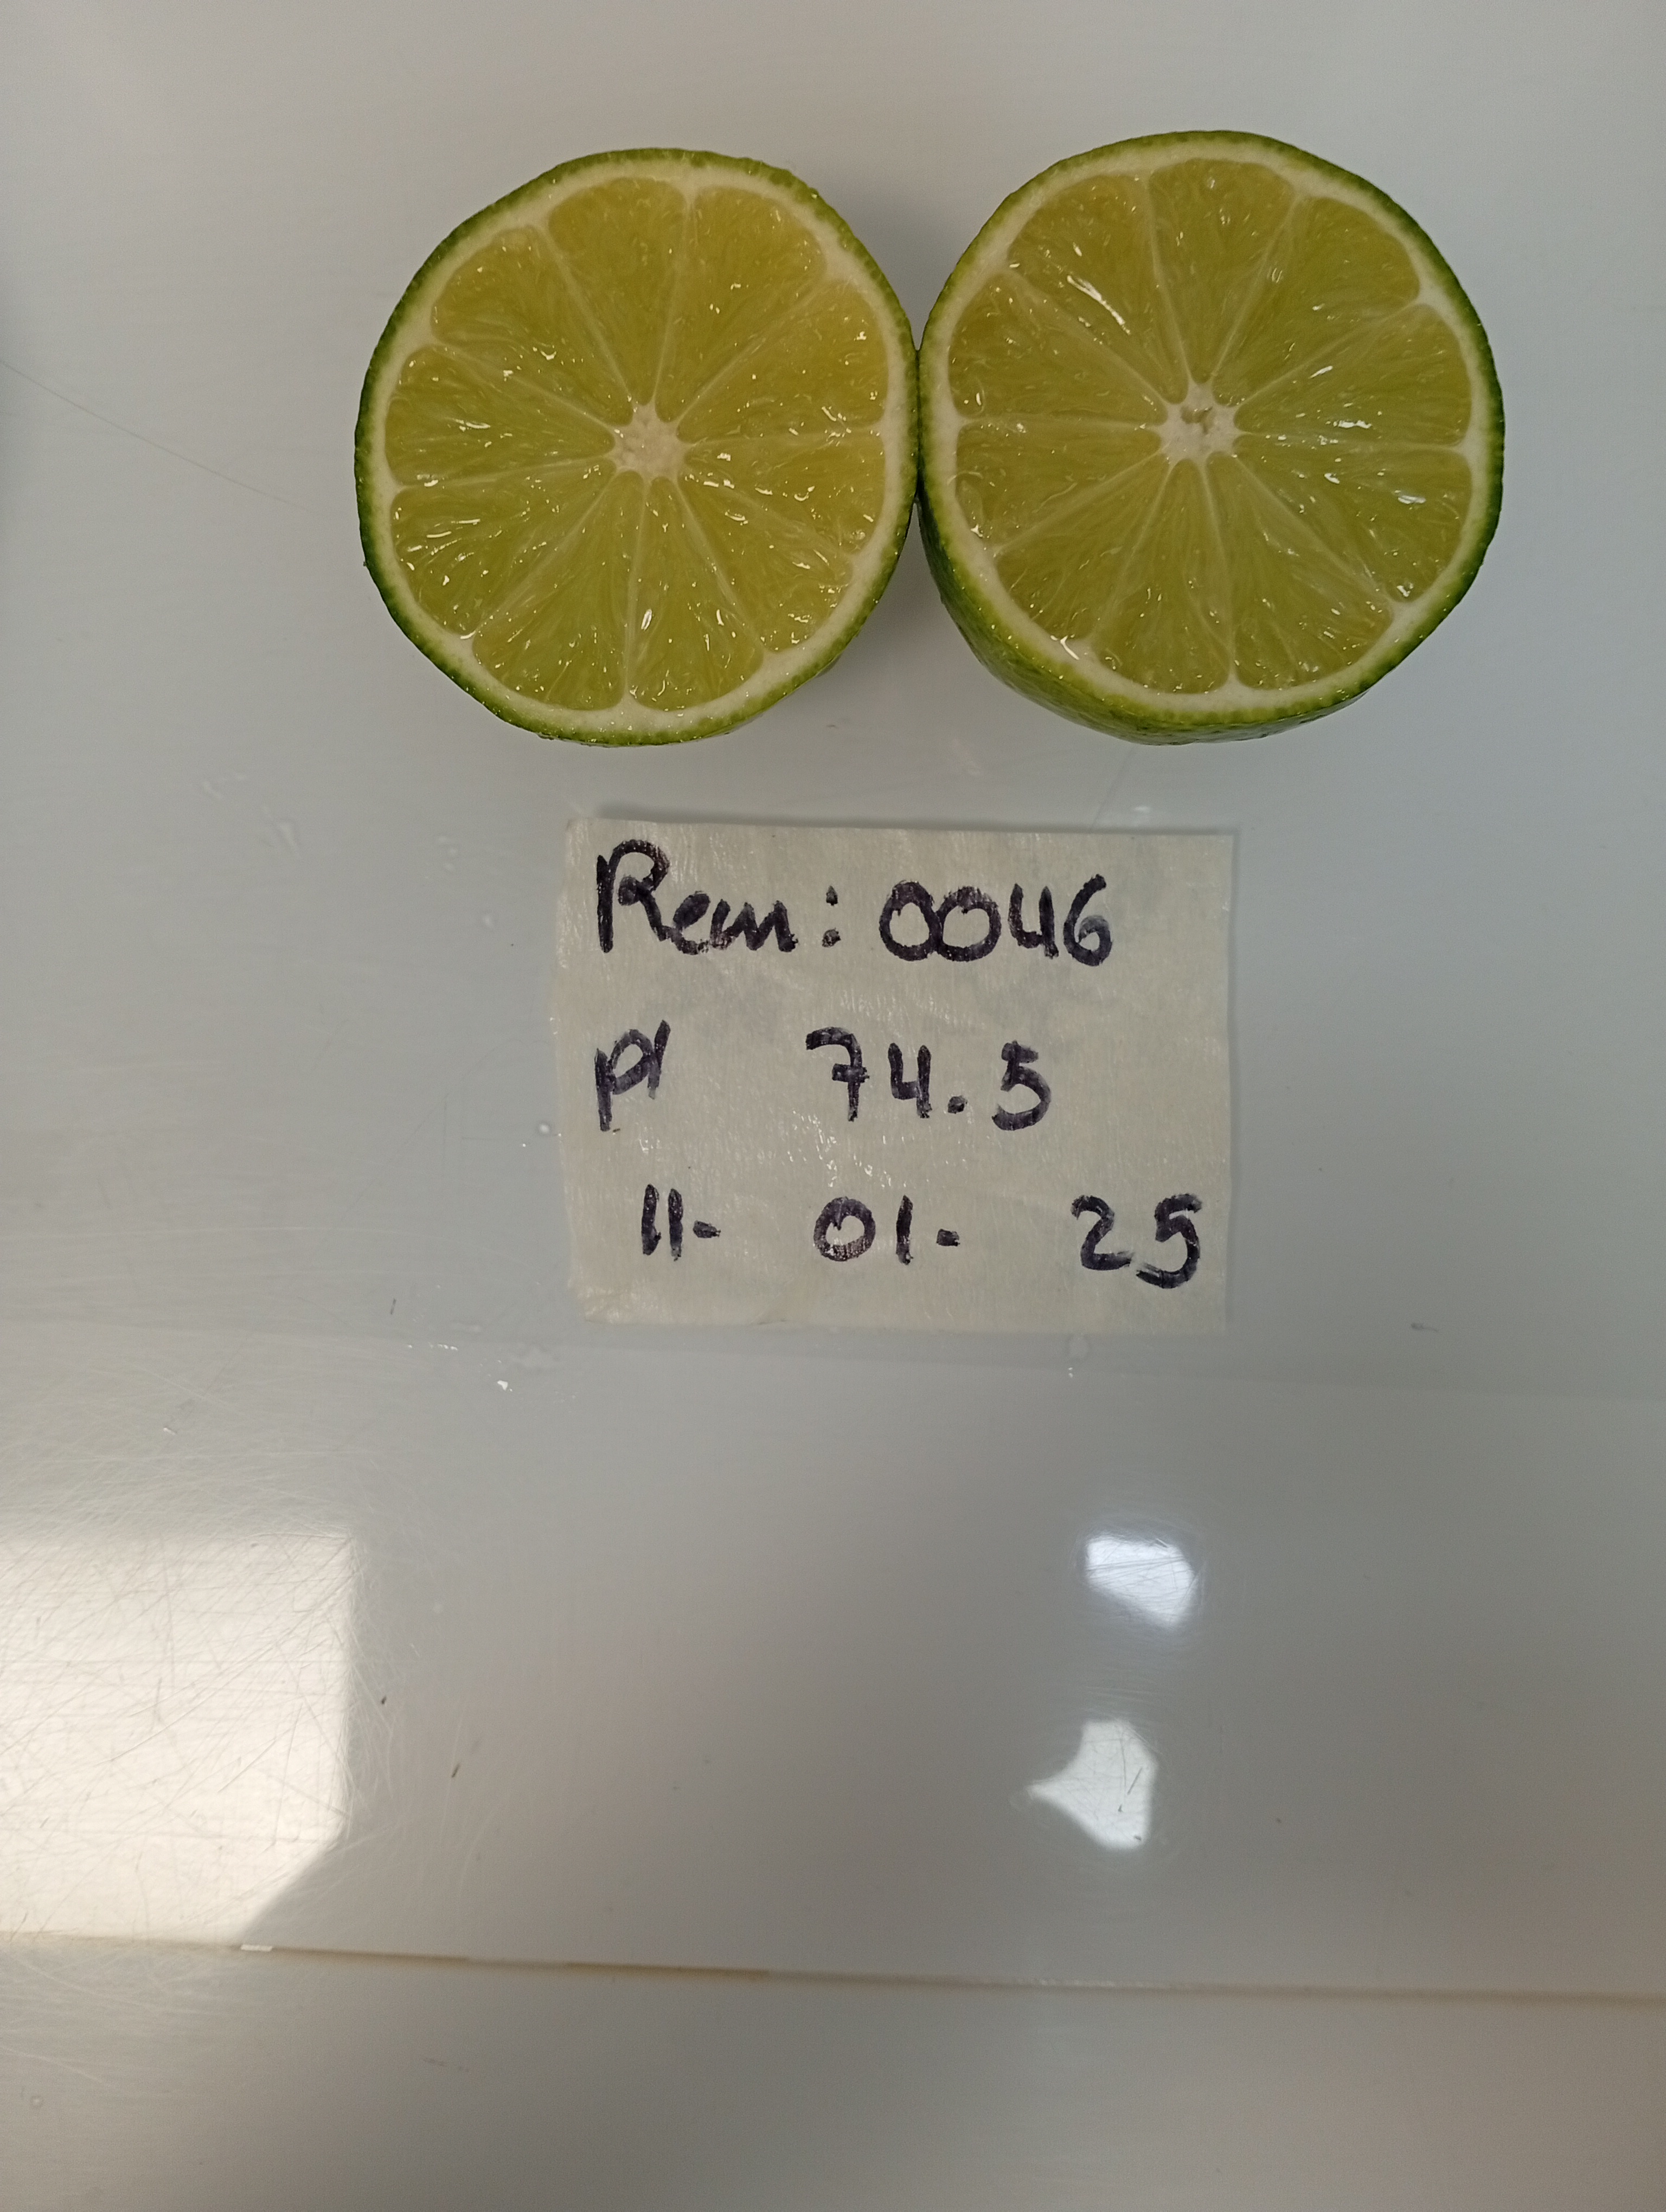 Rem: 0046
P/ 74.5
11- 01- 25